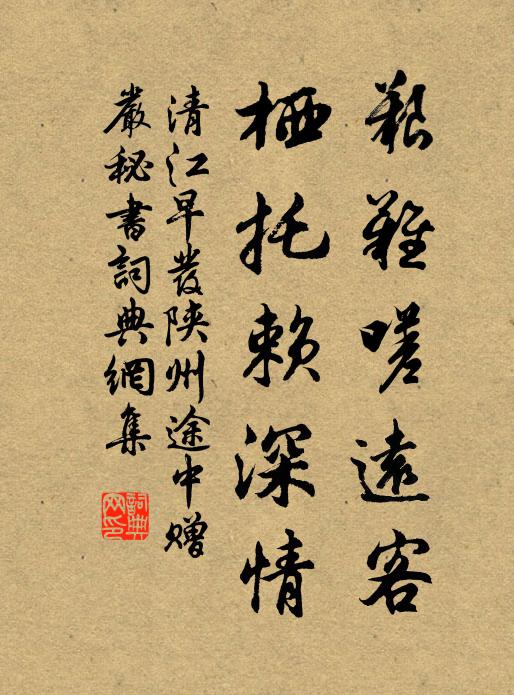 艱難嗟遠客
栖托賴深情
清江早發陝州途中贈
嚴秘書詞典網集
詞典網印